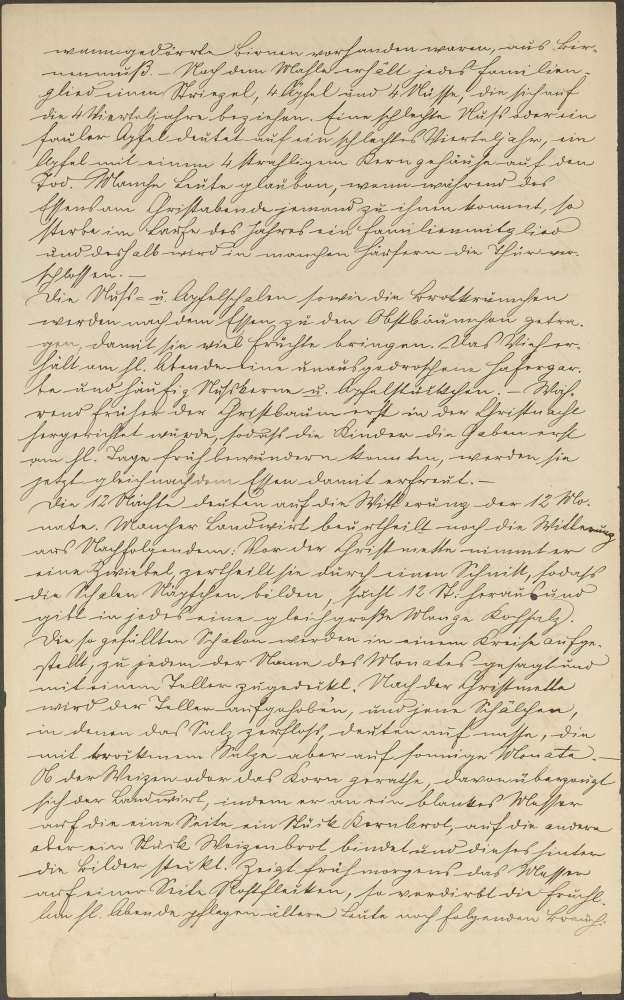 wenn gedörrte Birnen vorhanden waren, aus Bir-
nenmuß. — Nach dem Mahle erhält jedes Familien-
glied einen Striezel, 4 Äpfel und 4 Nüsse, die sich auf
die 4 Vierteljahre beziehen. Eine schlechte Nuß oder ein
fauler Apfel deutet auf ein schlechtes Vierteljahr, ein
Apfel mit einem 4 strahligem Kerngehäuse auf den
Tod. Manche Leute glauben, wenn während des
Essens am Christabende jemand zu ihnen kommt, so
sterbe im Laufe des Jahres ein Familienmitglied
und deshalb wird in manchen Häusern die Thür ver-
schlossen. —
Die Nuß- u. Apfelschalen sowie die Brotkrümchen
werden nach dem Essen zu den Obstbäumchen getra-
gen, damit sie viel Früchte bringen. Das Vieh er-
hält am hl. Abende eine unausgedroschene Hafergar-
be und häufig Nußkerne u. Apfelstückchen. — Wäh-
rend früher der Christbaum erst in der Christnacht
hergerichtet wurde, sodaß die Kinder die Gaben erst
am hl. Tage früh bewundern konnten, werden sie
jetzt gleich nach dem Essen damit erfreut. —
Die 12 Nächte deuten auf die Witterung der 12 Mo-
nate. Mancher Landwirt beurtheilt noch die Witterung
aus Nachfolgendem: Vor der Christmette nimmt er
eine Zwiebel, zertheilt sie durch einen Schnitt, sodaß
die Schalen Näpfchen bilden, sucht 12 St: heraus und
gibt in jedes eine gleich große Menge Kochsalz.
Die so gefüllten Schalen werden in einem Kreise aufge-
stellt, zu jedem der Name des Monates gesagt und
mit einem Teller zugedeckt. Nach der Christmette
wird der Teller aufgehoben, und jene Schälchen,
in denen das Salz zerfloß, deuten auf nasse, die
mit trockenem Salze aber auf sonnige Monate. —
Ob der Weizen oder das Korn gerathe, davon überzeugt
sich der Landwirt, indem er an ein blankes Messer
auf die eine Seite ein Stück Kernbrot, auf die andere
aber ein Stück Weizenbrot bindet und dieses hinter
die Bilder steckt. Zeigt früh morgens das Messer
auf einer Seite Rostflecken, so verdirbt die Frucht.
Am hl. Abende pflegen ältere Leute noch folgenden Brauch: